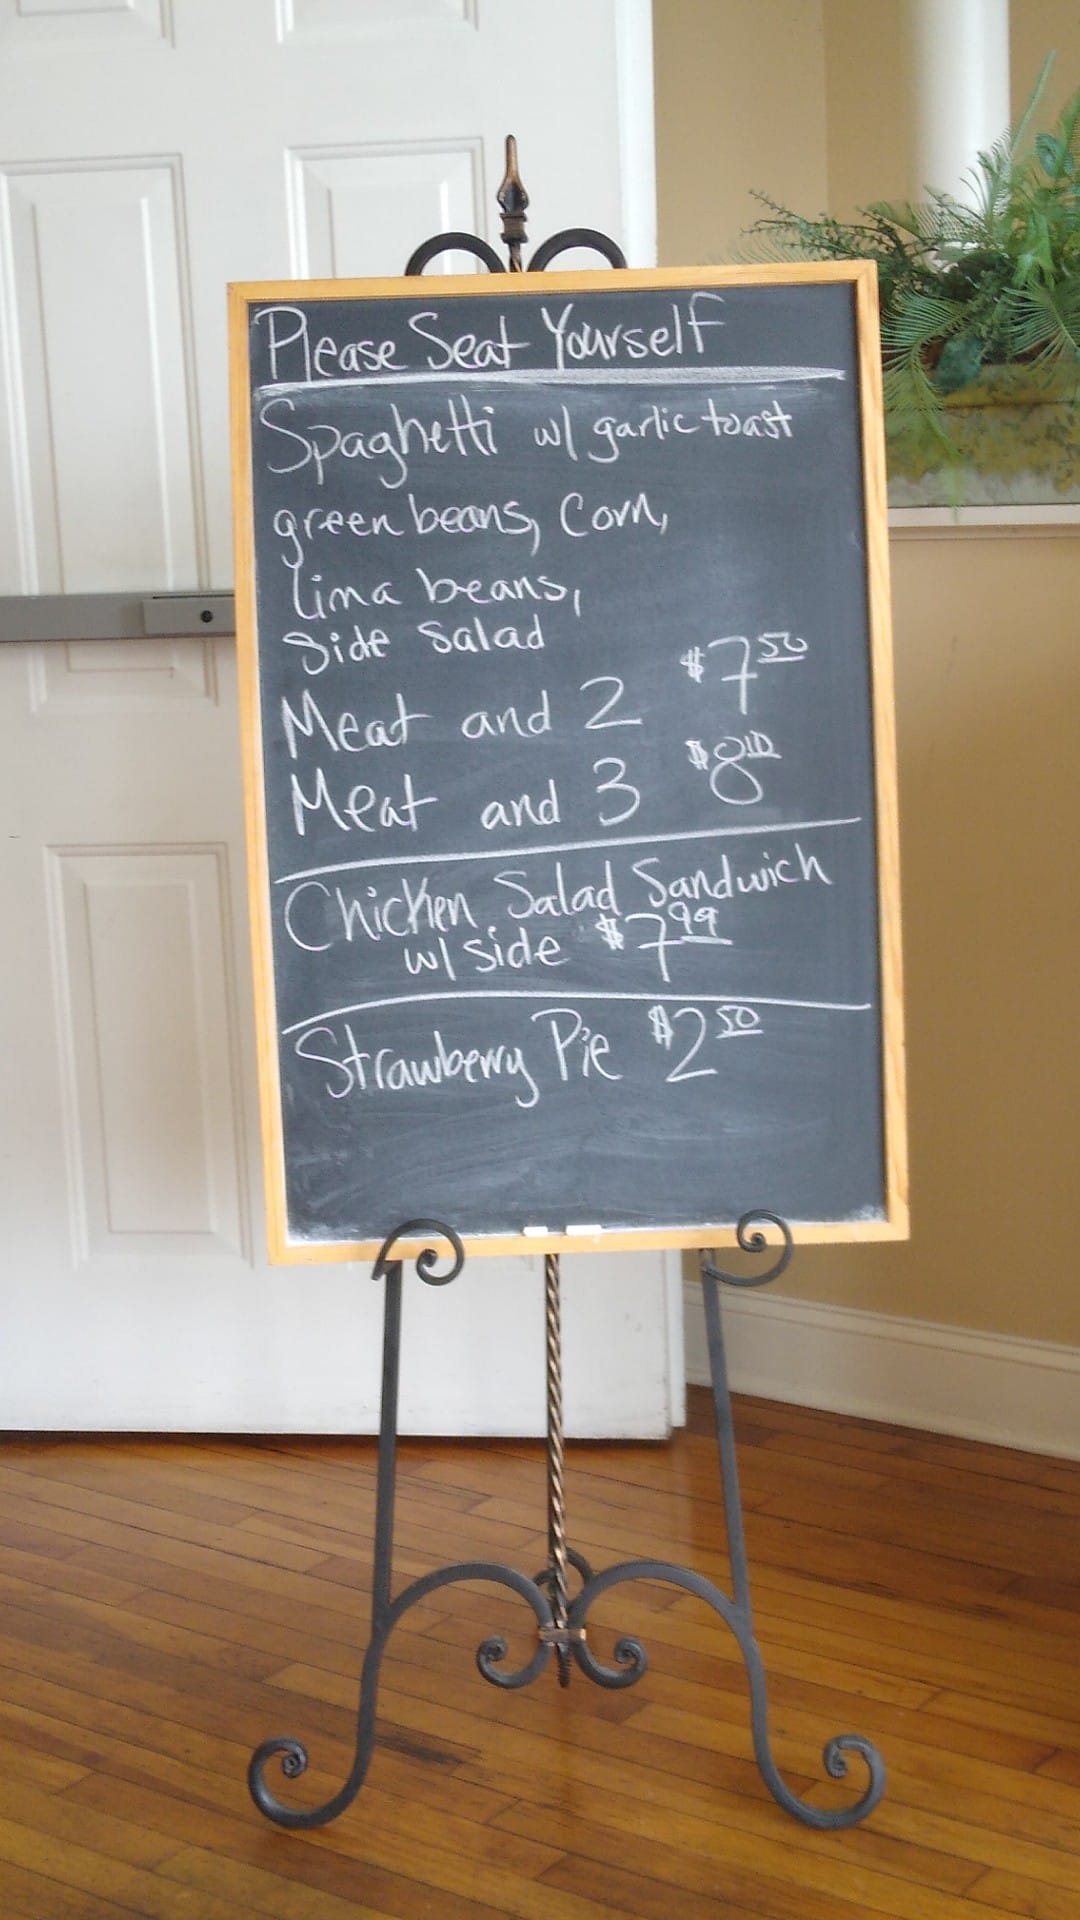 Please Seat Yourself
Spaghetti w/ garlic toast
green beans, Corn,
lima beans,
Side Salad
Meat and 2 $7 50
Meat and 3 $8 10
Chicken Salad Sandwich
w/ side $7 99
Strawberry Pie $2 50